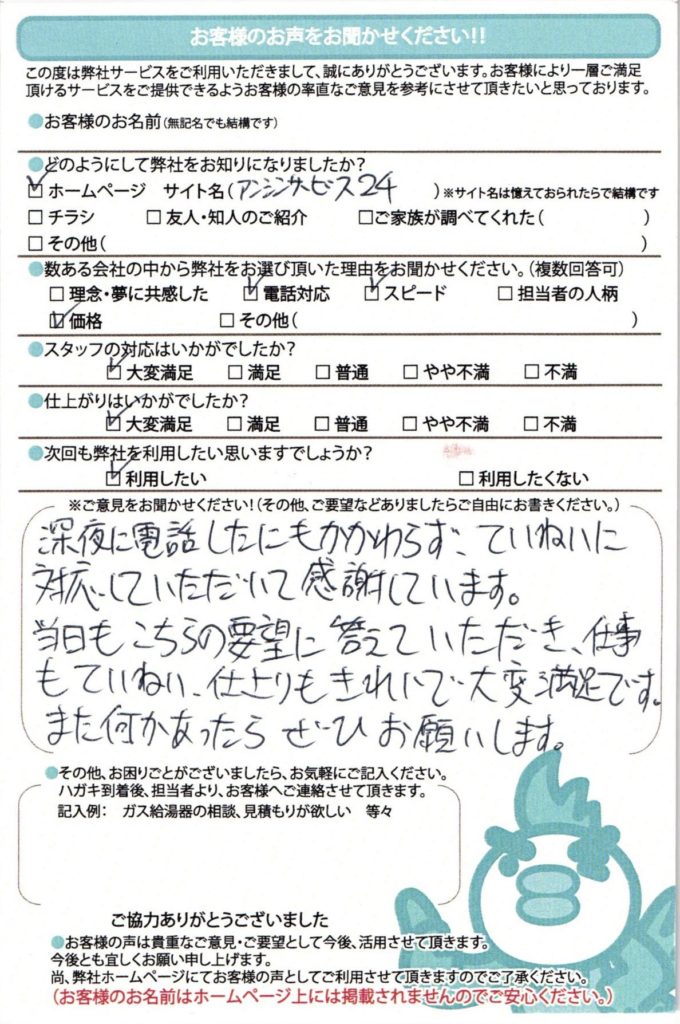 お客様のお声をお聞かせください!!
この度は弊社サービスをご利用いただきまして、誠にありがとうございます。お客様により一層ご満足
頂けるサービスをご提供できるようお客様の率直なご意見を参考にさせて頂きたいと思っております。
●お客様のお名前(無記名でも結構です)
●どのようにして弊社をお知りになりましたか?
☑ホームページ サイト名(アンシンサービス24 )※サイト名は憶えておられたらで結構です
□チラシ □友人・知人のご紹介 □ご家族が調べてくれた( )
□その他( )
●数ある会社の中から弊社をお選び頂いた理由をお聞かせください。(複数回答可)
□理念・夢に共感した ☑電話対応 ☑スピード □担当者の人柄
☑価格 □その他( )
●スタッフの対応はいかがでしたか?
☑大変満足 □満足 □普通 □やや不満 □不満
●仕上がりはいかがでしたか?
☑大変満足 □満足 □普通 □やや不満 □不満
●次回も弊社を利用したい思いますでしょうか?
☑利用したい □利用したくない
※ご意見をお聞かせください!(その他、ご要望などありましたらご自由にお書きください。)
深夜に電話したにもかかわらず、ていねいに
対応していただいて感謝しています。
当日もこちらの要望に答えていただき、仕事
もていねい、仕上りもきれいで大変満足です。
また何かあったらぜひお願いします。
●その他、お困りごとがございましたら、お気軽にご記入ください。
ハガキ到着後、担当者より、お客様へご連絡させて頂きます。
記入例: ガス給湯器の相談、見積もりが欲しい 等々
ご協力ありがとうございました
●お客様の声は貴重なご意見・ご要望として今後、活用させて頂きます。
今後とも宜しくお願い申し上げます。
尚、弊社ホームページにてお客様の声としてご利用させて頂きますのでご了承ください。
(お客様のお名前はホームページ上には掲載されませんのでご安心ください。)